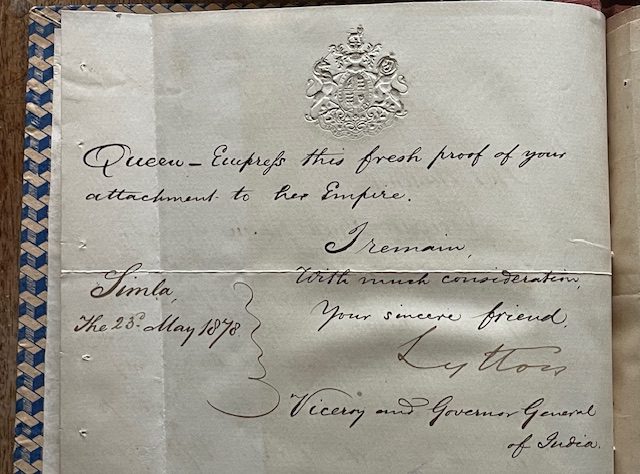 Queen – Empress this fresh proof of your
attachment to her Empire.
I remain,
With much consideration,
Your sincere friend,
Lytton
Simla,
The 23d. May 1878
Viceroy and Governor General
of India.